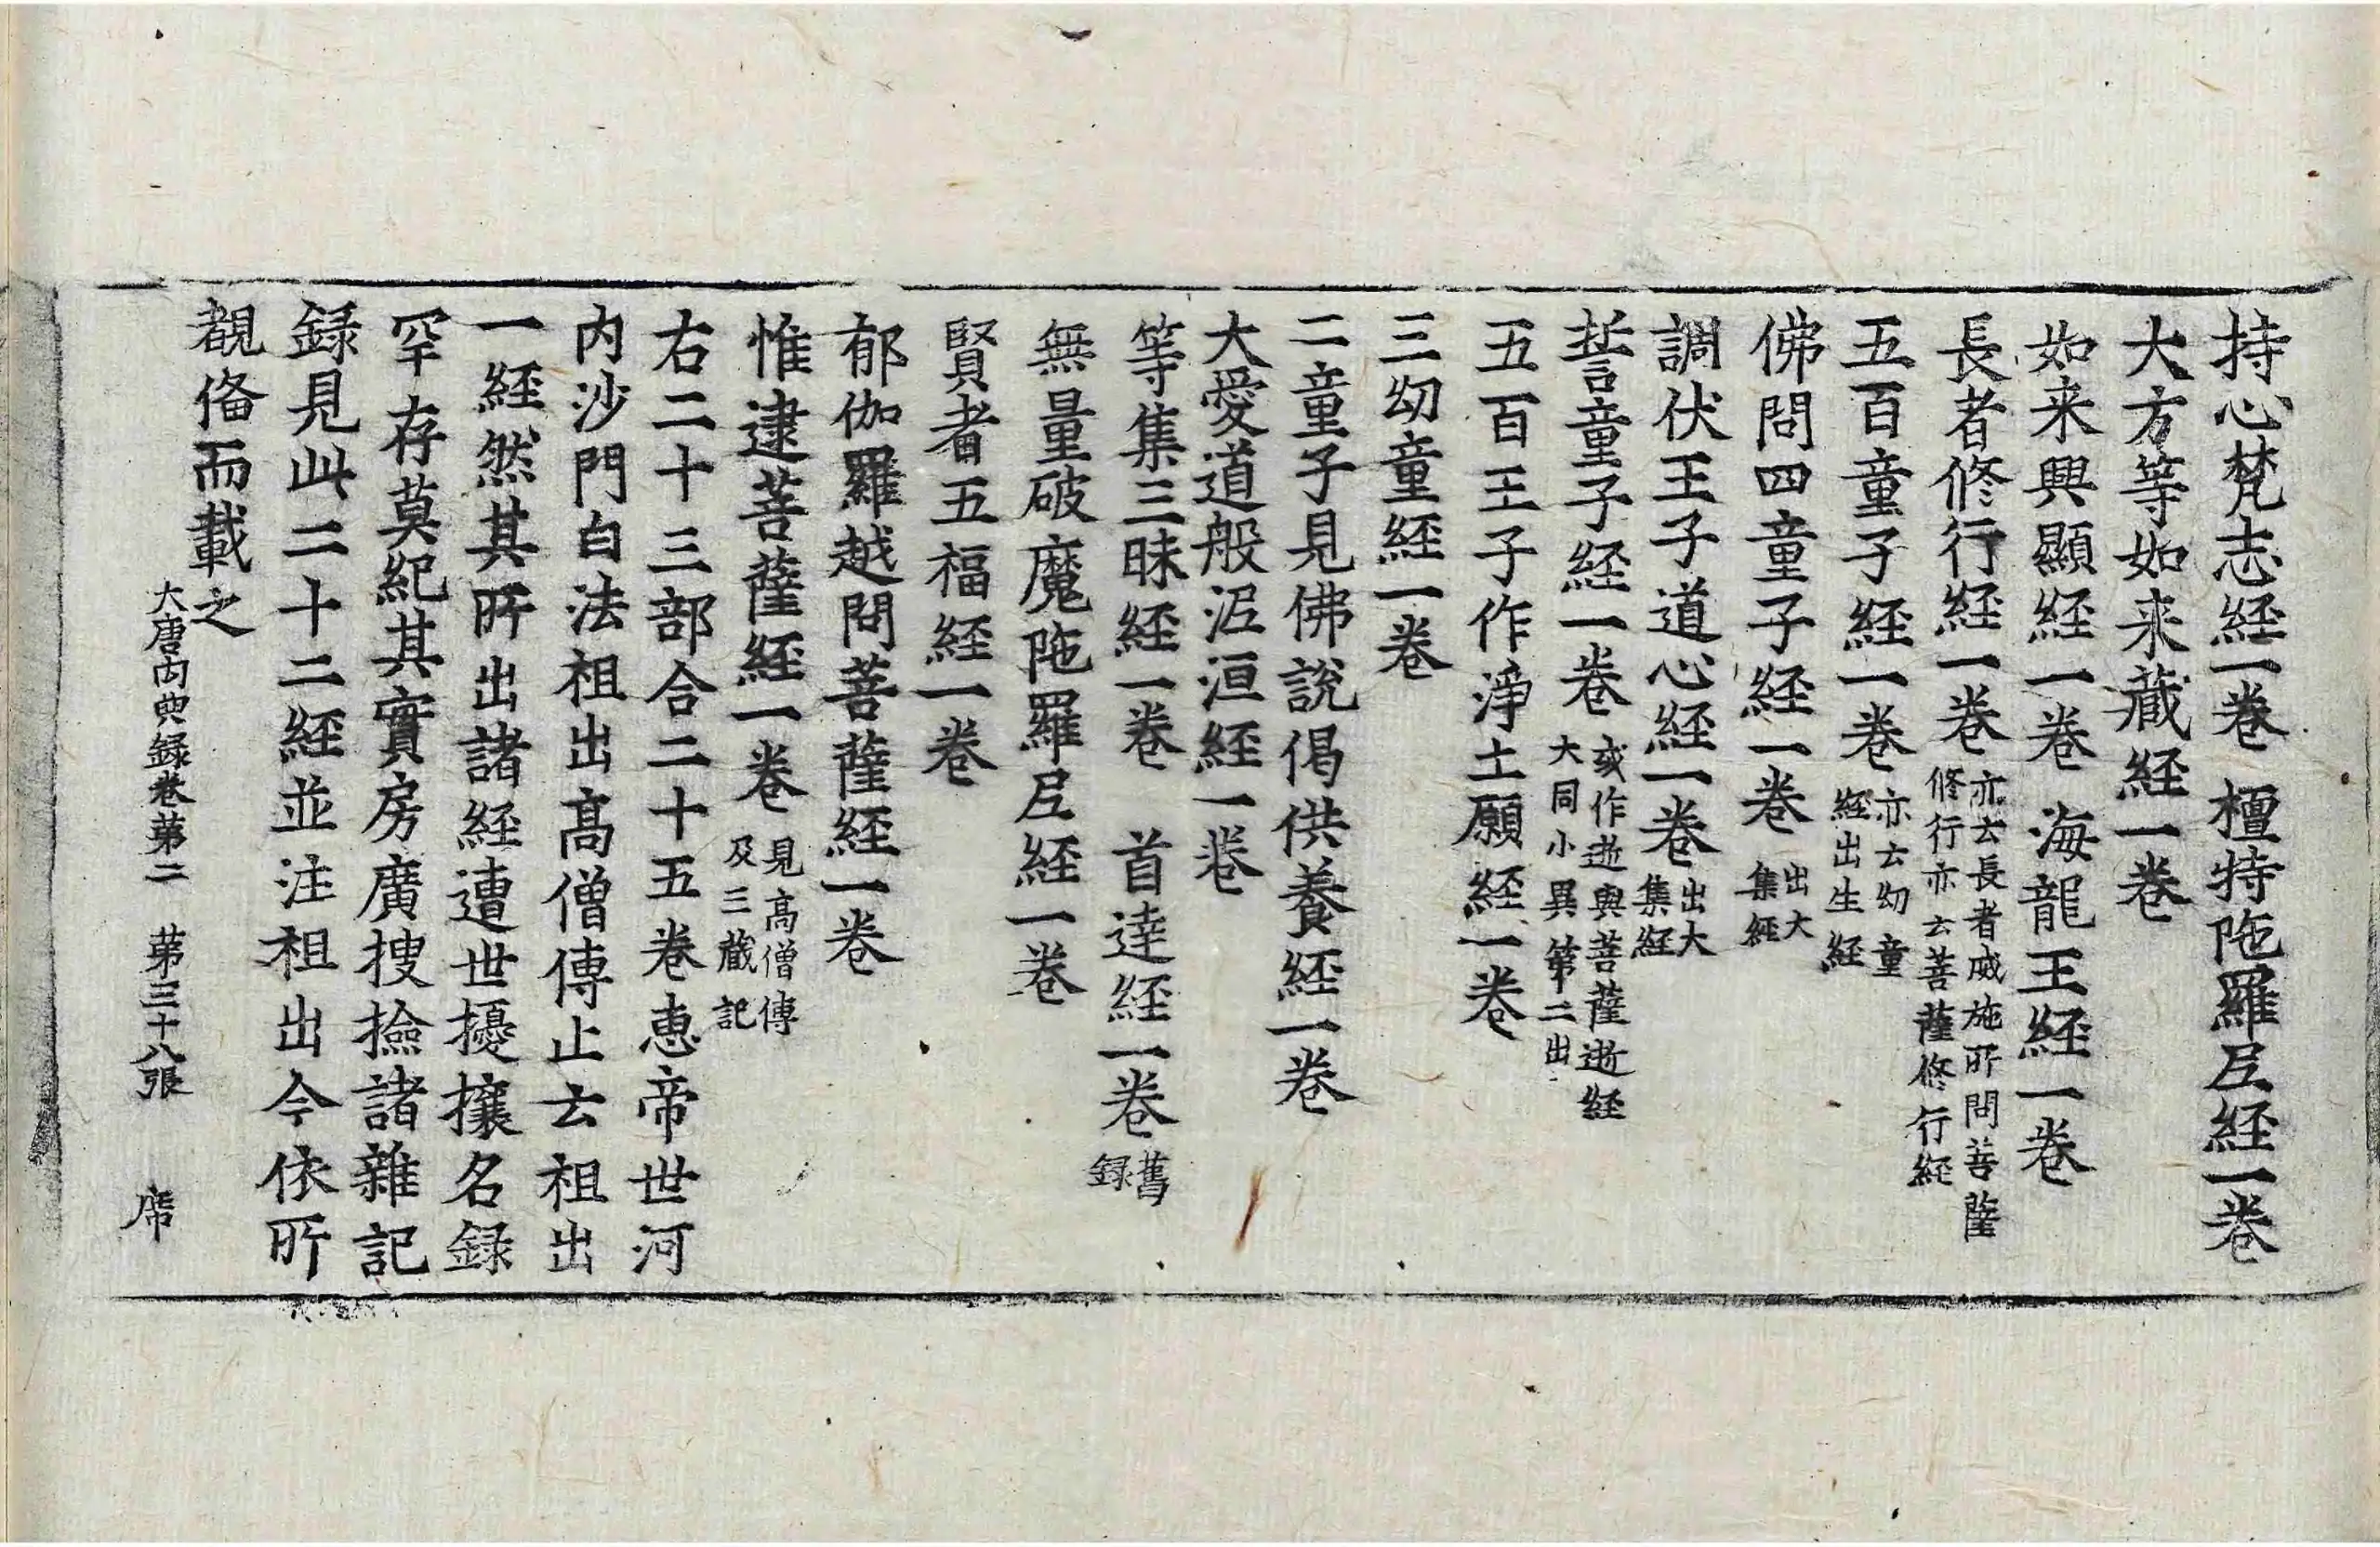 持心梵志経一卷 檀特陁羅𡰱経一卷
大方等如来藏経一卷
如来興顯経一卷 海龍王経一卷
長者修行経一卷 亦云長者威施所問菩薩
修行亦云菩薩修行経
五百童子経一卷 亦云幼童
経出生経
佛問四童子経一卷 出大
集経
調伏王子道心経一卷 出大
集経
誓童子経一卷 或作逝與菩薩逝経
大同小異第二出
五百王子作淨土願経一卷
三幼童経一卷
二童子見佛說偈供養経一卷
大愛道般泥洹経一卷
等集三昧経一卷 首達経一卷 舊
録
無量破魔陁羅𡰱経一卷
賢者五福経一卷
郁伽羅越問菩薩経一卷
惟逮菩薩経一卷 見高僧傳
及三藏記
右二十三部合二十五卷惠帝世河
内沙門白法祖出高僧傳止云祖出
一経然其所出諸経遭世擾攘名録
罕存莫紀其實房廣搜撿諸雜記
録見此二十二経並注祖出今依所
覩俻而載之
大唐内典録卷第二 第三十八張 席